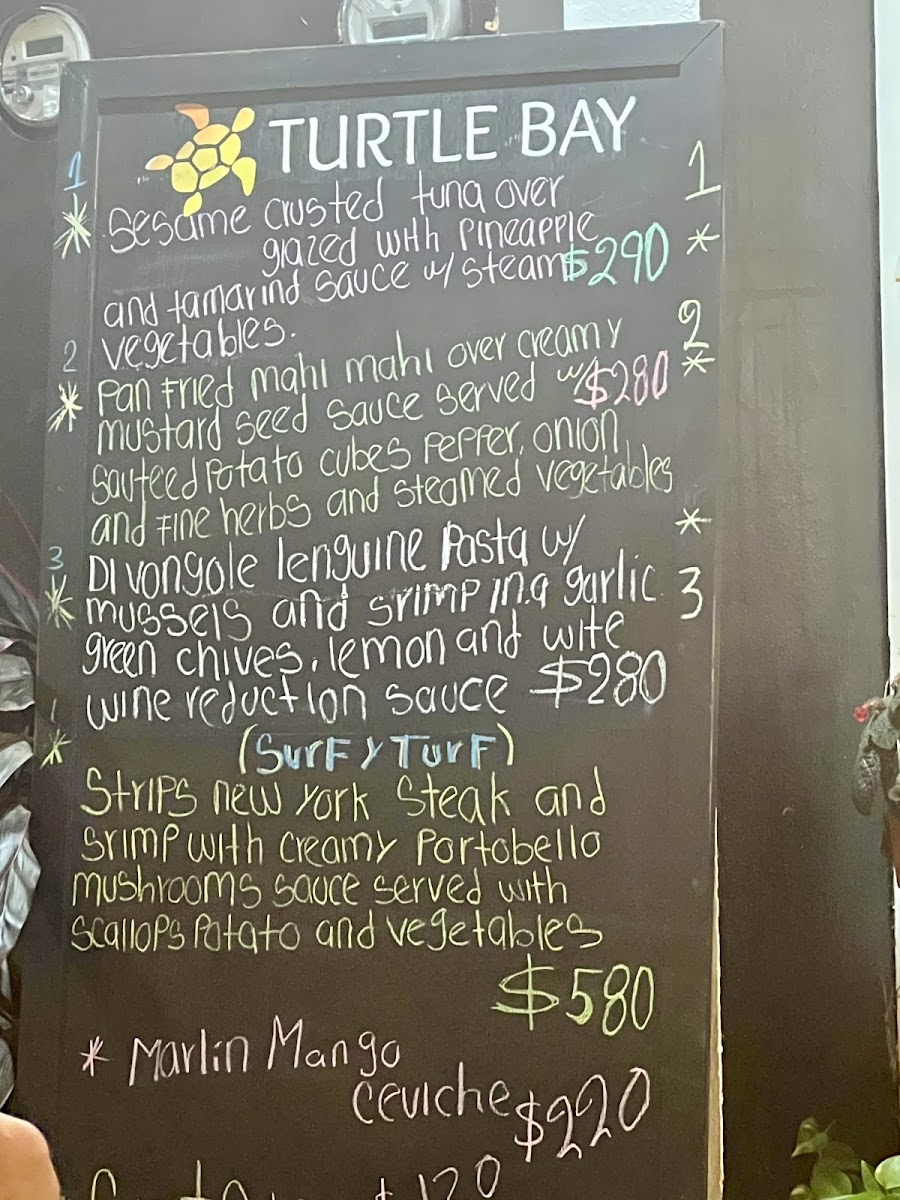 TURTLE BAY
1 1
* Sesame crusted tuna over
glazed with pineapple
and tamarind sauce w/ steam $290 *
vegetables.
2 2
* Pan Fried mahi mahi over creamy
mustard seed sauce served w/ $280 *
sauteed potato cubes pepper, onion,
and fine herbs and steamed vegetables
3 *
* Di vongole lenguine Pasta w/
mussels and srimp in a garlic 3
green chives, lemon and wite
wine reduction sauce $280
* (Surf y Turf)
Strips new york steak and
srimp with creamy Portobello
mushrooms sauce served with
scallops potato and vegetables
$580
* Marlin Mango
ceviche $220
$120